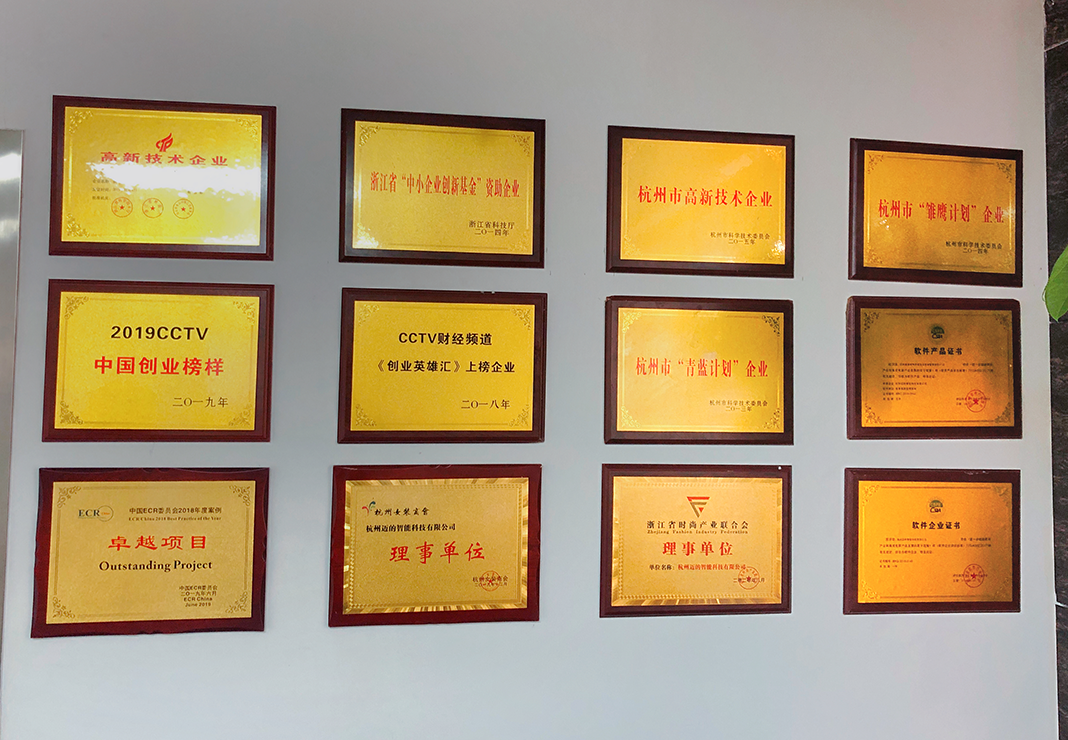 高新技术企业
浙江省“中小企业创新基金”资助企业
浙江省科技厅
二〇一四年
杭州市高新技术企业
杭州市科学技术委员会
二〇一五年
杭州市“雏鹰计划”企业
杭州市科学技术委员会
二〇一四年
2019CCTV
中国创业榜样
二〇一九年
CCTV财经频道
《创业英雄汇》上榜企业
二〇一八年
杭州市“青蓝计划”企业
杭州市科学技术委员会
二〇一三年
软件产品证书
ECR
中国ECR委员会2018年度案例
ECR China 2018 Best Practice of the Year
卓越项目
Outstanding Project
中国ECR委员会
二〇一九年六月
ECR China
June 2019
杭州女装商会
杭州迈的智能科技有限公司
理事单位
浙江省时尚产业联合会
Zhejiang Fashion Industry Federation
理事单位
单位名称：杭州迈的智能科技有限公司
软件企业证书